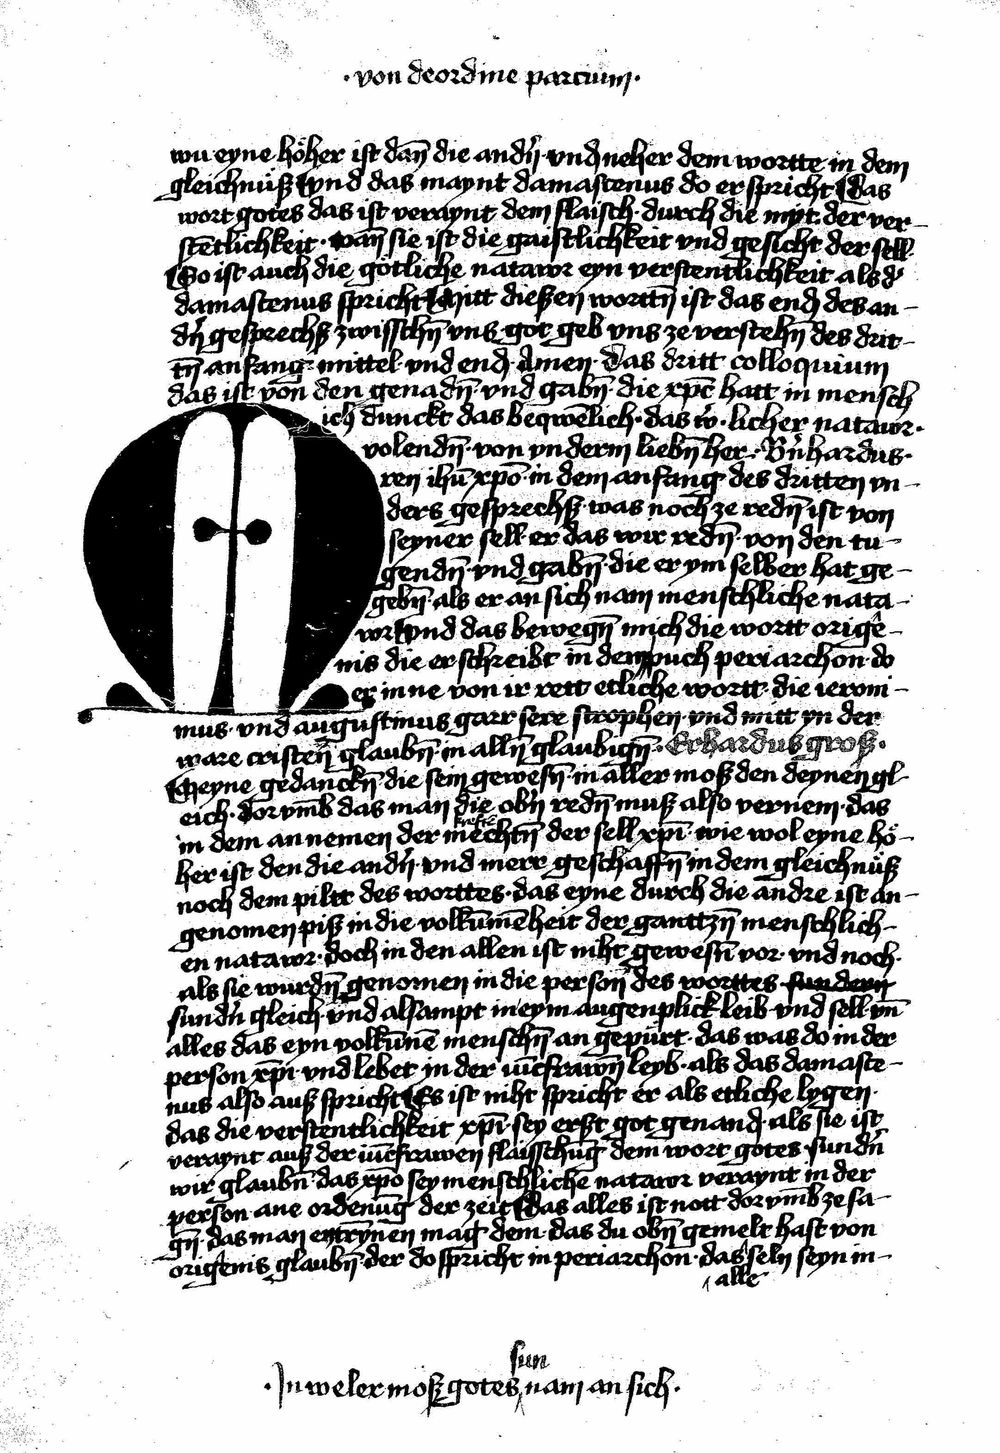 ·von deordine parcium·
wu eyne höher ist dan̄ die andn̄ · vnd neher dem wortte in dem
gleichnüß Vnd das maynt damascenus do er spricht Das
wort gotes das ist veraynt dem flaisch · durch die myt · der ver-
stētlichkeit · wan̄ sie ist die gaistlichkeit vnd gesicht der sell
So ist auch die götliche natawr eyn verstentlichkeit als d'
damascenus spricht Mitt dießen worttn̄ ist das end des an-
dn̄ gesprechß zwisschn̄ vns · got geb vns ze verstehn̄ des drit-
tn̄ anfang · mittel · vnd end · Amen · Das dritt colloquium
das ist von den genadn̄ · vnd gabn̄ · die xp̄c hatt in mensch
ich dunckt das beqwēlich · das w̄ · licher natawr ·
volendn̄ · von vnderm liebn̄ her · Bn̄hardus ·
ren ihū xp̄o · in dem anfang des dritten vn-
ders gesprechß · was noch ze redn̄ ist von
seyner sell · er das wir redn̄ · von den tu-
gendn̄ · vnd gabn̄ · die er ym selber hat ge-
gebn̄ · als er an sich nam menschliche nata-
wr Vnd das bewegn̄ mich die wortt orige-
nis die er schreibt in dem puch periarchon · do
er inne von ir rett etliche wortt · die ieroni-
mus · vnd augustinus garr sere strophen · vnd mitt yn der
ware cristen̄ glaubn̄ in alln̄ glaubign̄ · Erhardus groß ·
Meyne gedanckn̄ die sein gewesn̄ · in aller moß den deynen gl-
eich · Dor vm̄b das man die obn̄ redn̄ muß also vernem · das
krefte
in dem an nemen der mechtn̄ der sell xp̄i · wie wol eyne hö-
her ist den die andn̄ · vnd merr geschaffn̄ in dem gleichnüß
noch dem piltt des worttes · das eyne durch die andre ist an-
genomen piß in die volkūmēheit der gantzn̄ menschlich-
en natawr · doch in den allen ist niht gewesn̄ vor · vnd noch ·
als sie wurdn̄ genomen in die person̄ des worttes sundern
sundn̄ gleich · vnd alsampt in eym augenplick leib · vnd sell · vn̄
alles das eyn volkūnē menschn̄ an gepürt · das was do in der
person xp̄i · vnd lebet in der iūcfrawn̄ leyb · als das damasce-
nus also auß spricht Es ist niht spricht er als etliche lygen ·
das die verstentlichkeit xp̄i · sey erst got genand · als sie ist
veraynt auß der iūcfrawen flaisschūg dem wort gotes · sundn̄
wir glaubn̄ · das xp̄o sey menschliche natawr veraynt in der
person ane ordenūg der zeit Das alles ist nott dor vm̄b ze sa-
gn̄ · das man entrynen mag dem · das du obn̄ gemelt hast von
origenis glaubn̄ · der do spricht in periarchon · das seln seyn in-
alle
sun
·In weler moß gotes nam an sich ·